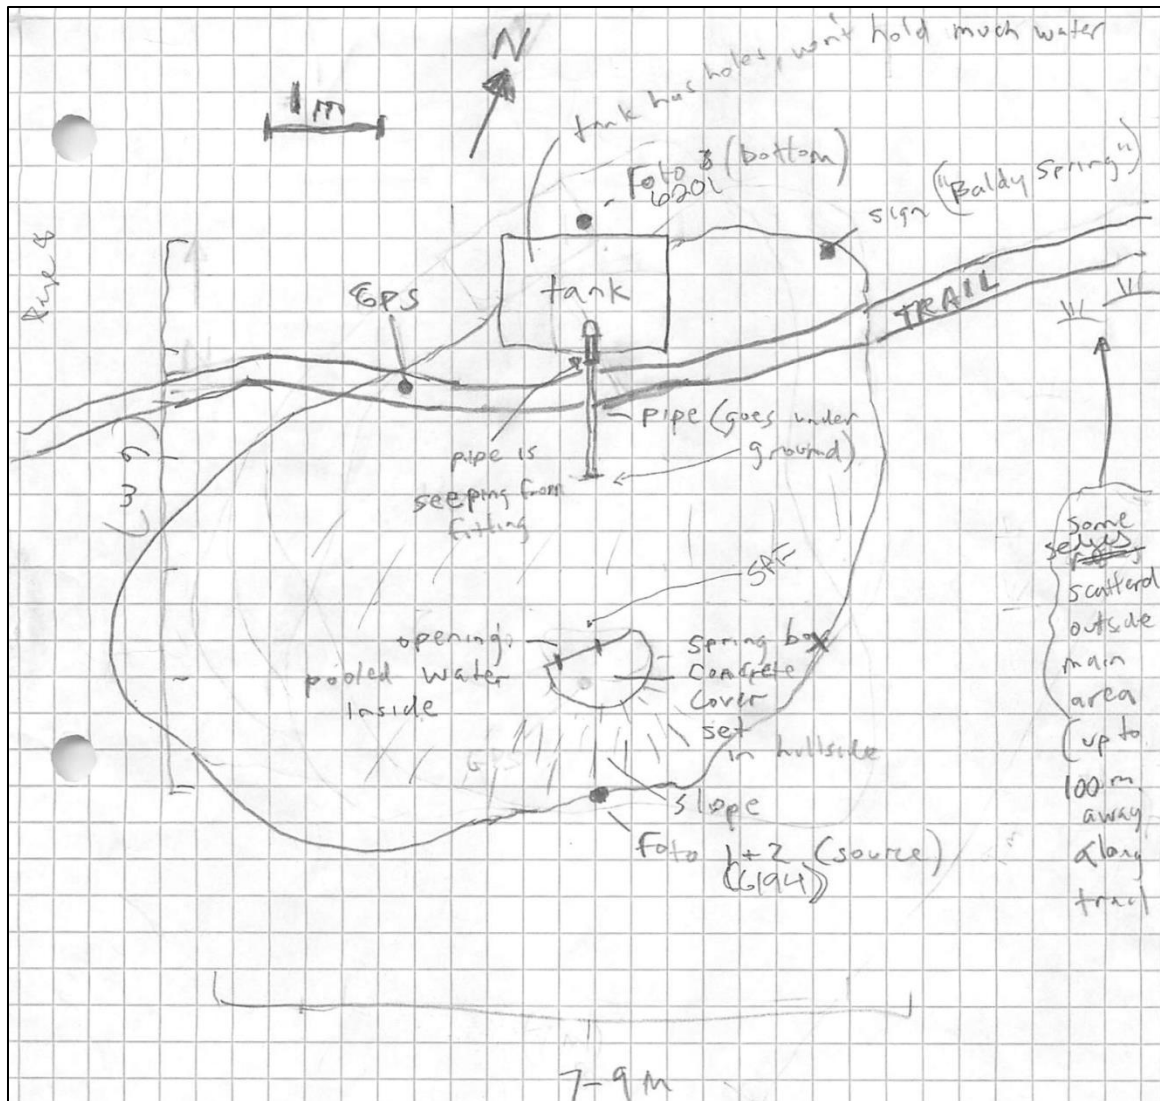 N
1 m
tank has holes, won't hold much water
Foto 3 (bottom)
6201
sign ("Baldy Spring")
GPS
tank
TRAIL
pipe (goes under
ground)
pipe is
seeping from
fitting
SPF
opening,
pooled water
inside
spring box
concrete
cover
set
in hillside
slope
Foto 1+2 (source)
(6194)
some
sedges
scatterd
outside
main
area
(up to
100 m
away
along
7-9 m